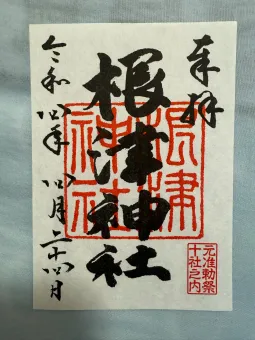 奉拝
根津神社
根津
神社
元准勅祭
十社之内
令和四年四月二十四日